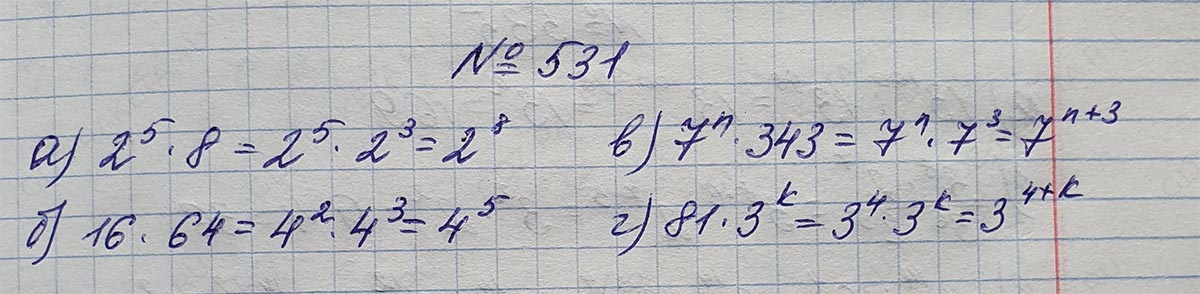 № 531
а) 2⁵ · 8 = 2⁵ · 2³ = 2⁸ в) 7ⁿ · 343 = 7ⁿ · 7³ = 7ⁿ⁺³
б) 16 · 64 = 4² · 4³ = 4⁵ г) 81 · 3ᵏ = 3⁴ · 3ᵏ = 3⁴⁺ᵏ